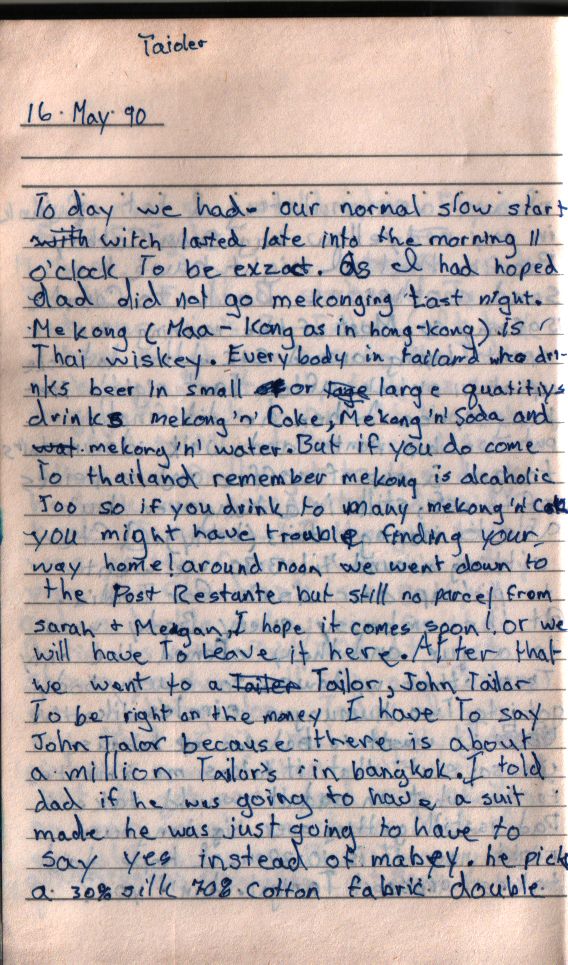 Taider
16. May. 90
To day we had our normal slow start
with witch lasted late into the morning 11
o'clock To be exzact. As I had hoped
dad did not go mekonging Last night.
Mekong (Maa-Kong as in hong-kong) is
Thai wiskey. Every body in tailand who dri-
nks beer in small or large quatitiys
drinks mekong 'n' Coke, Mekong 'n' Soda and
wat mekong 'n' water. But if you do come
To thailand remember mekong is alcaholic
Too so if you drink to many mekong 'n' Coke
you might have trouble finding your
way home! around noon we went down to
the Post Restante but still no parcel from
sarah & Meagan, I hope it comes soon! or we
will have To Leave it here. After that
we went to a Tailer Tailor, John Tailor
To be right on the money I have To say
John Talor because there is about
a million Tailor's in bangkok. I told
dad if he was going to have a suit
made he was just going to have to
say yes instead of mabey. he pick
a 30% silk 70% cotton fabric double